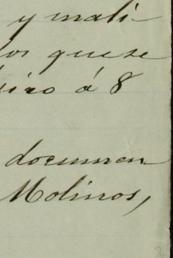 y mali-
los que se
giro á 8
documen
Molinos,